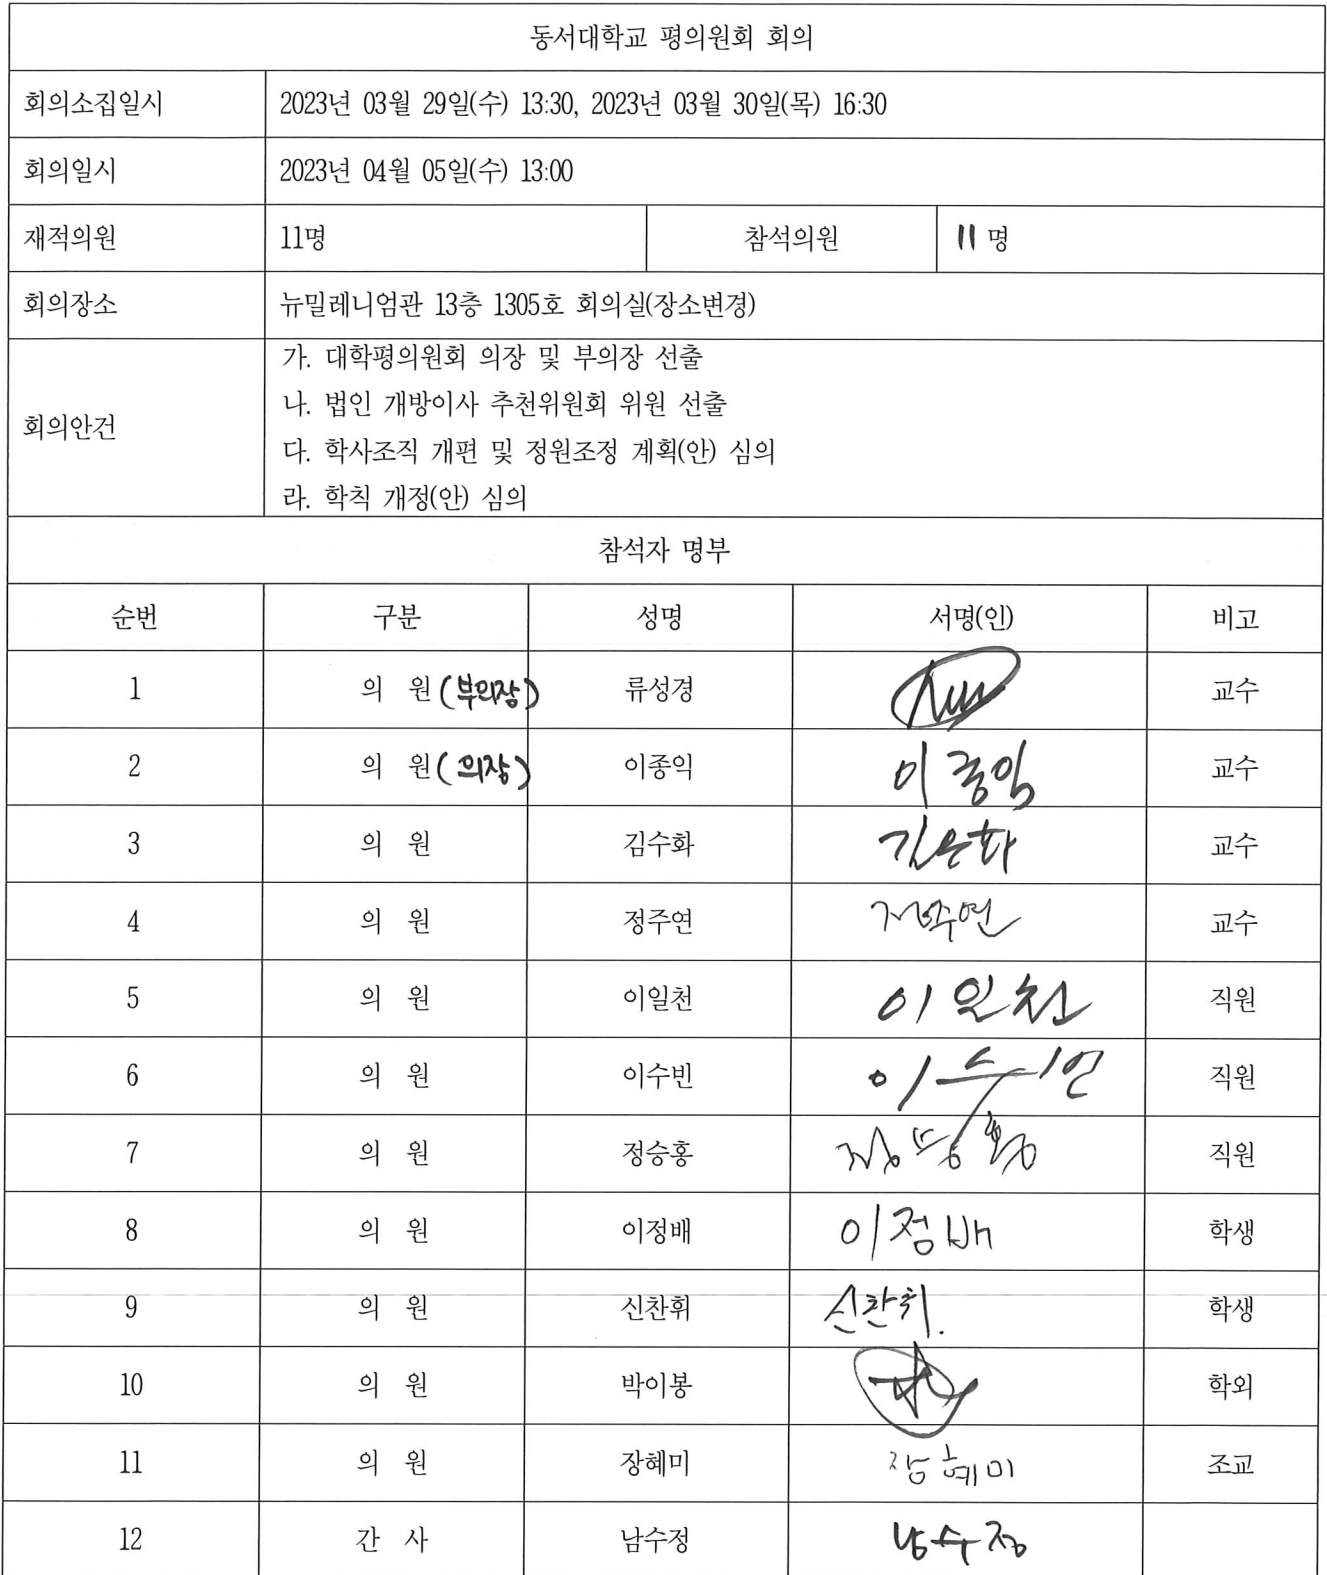 동서대학교 평의원회 회의
회의소집일시 2023년 03월 29일(수) 13:30, 2023년 03월 30일(목) 16:30
회의일시 2023년 04월 05일(수) 13:00
재적의원 11명 참석의원 11 명
회의장소 뉴밀레니엄관 13층 1305호 회의실(장소변경)
회의안건
가. 대학평의원회 의장 및 부의장 선출
나. 법인 개방이사 추천위원회 위원 선출
다. 학사조직 개편 및 정원조정 계획(안) 심의
라. 학칙 개정(안) 심의
참석자 명부
순번 구분 성명 서명(인) 비고
1 의 원 (부의장) 류성경 교수
2 의 원 (의장) 이종익 이종익 교수
3 의 원 김수화 교수
4 의 원 정주연 정주연 교수
5 의 원 이일천 이일천 직원
6 의 원 이수빈 이수빈 직원
7 의 원 정승홍 정승홍 직원
8 의 원 이정배 이정배 학생
9 의 원 신찬휘 신찬휘. 학생
10 의 원 박이봉 학외
11 의 원 장혜미 장혜미 조교
12 간 사 남수정 남수정